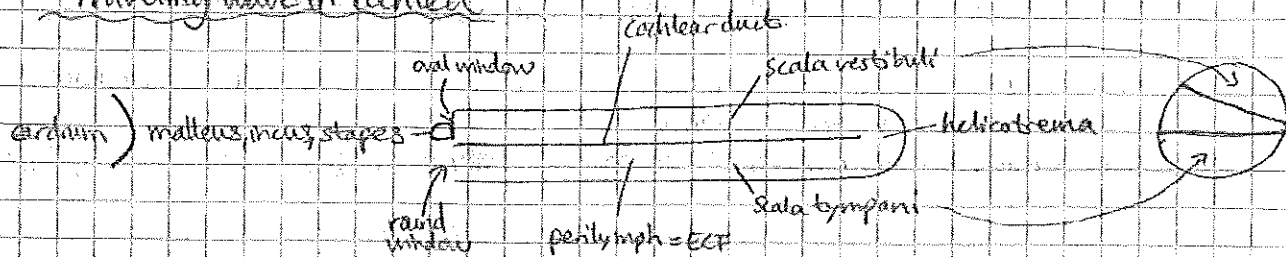 Travelling wave in cochlea
cochlear duct
oval window
scala vestibuli
eardrum) malleus, incus, stapes
helicotrema
round window
scala tympani
perilymph = ECF